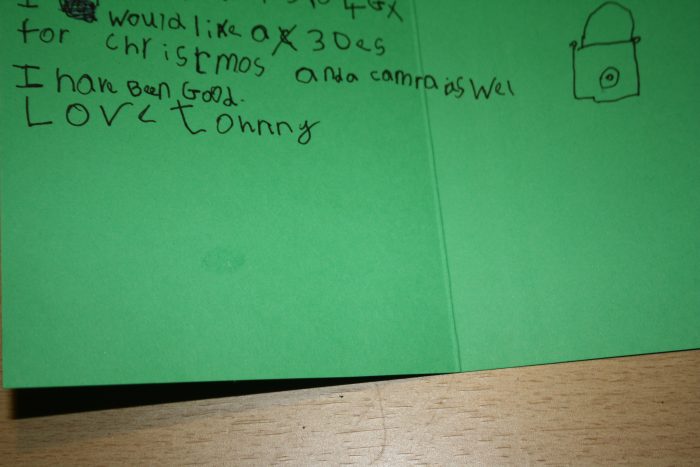 I would like a X 3Des
for christmos anda camra as wel
I have Been Good.
Love tohnny